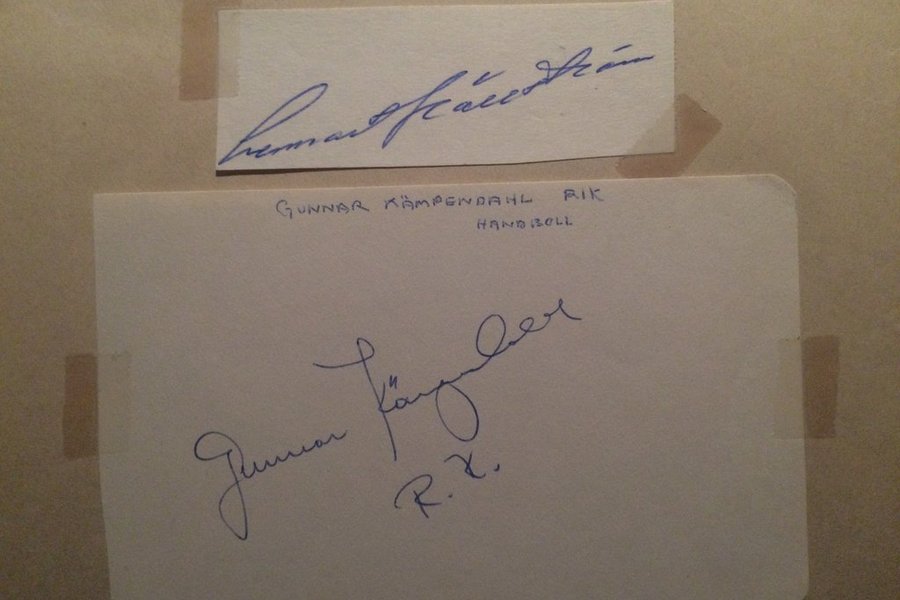 Lennart Källström
GUNNAR KÄMPENDAHL RIK
HANDBOLL
Gunnar Kämpendahl
R.K.